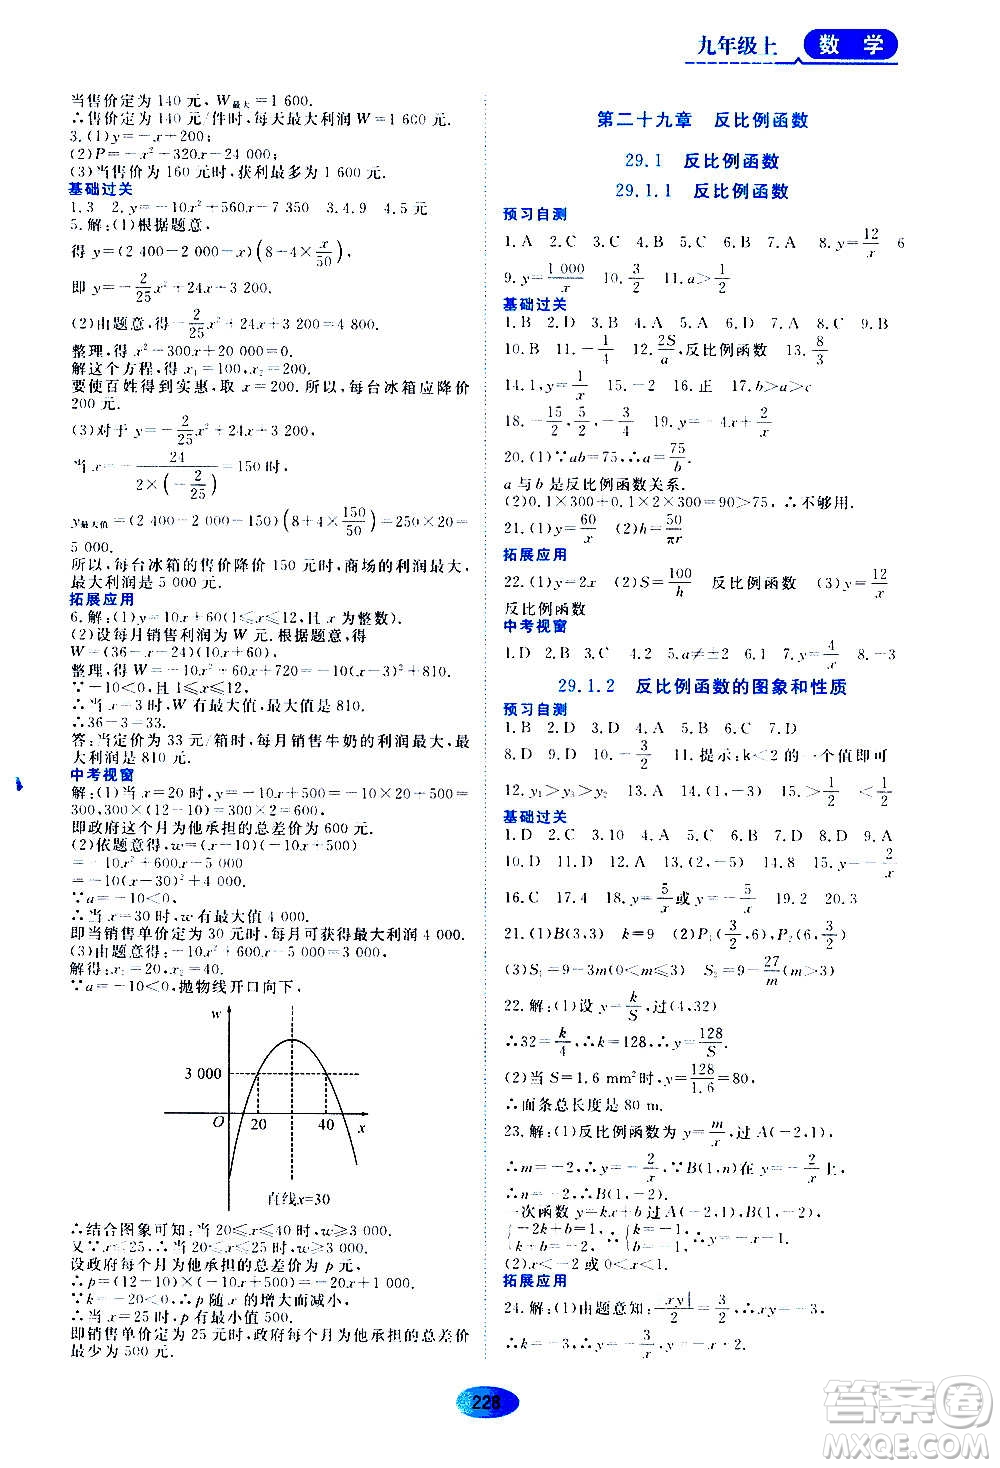 九年级上 数学
当售价定为 140 元、W最大=1 600.
∴售价定为 140 元/件时,每天最大利润 W=1 600 元.
3.(1)y=-x+200;
(2)P=-x²+320x-24 000;
(3)当售价为 160 元时,获利最多 1 600 元.
基础过关
1.3 2.y=-10x²+560x-7 350 3.4.9 4.5 元
5.解:(1)根据题意,
得 y=(2 400-2 000-x)(8+4×x/50),
即 y=-2/25x²+24x+3 200.
(2)由题意,得-2/25x²+24x+3 200=4 800.
整理,得 x²-300x+20 000=0.
解这个方程,得 x₁=100,x₂=200.
要使百姓得到实惠,取 x=200.所以,每台冰箱应降价
200 元.
(3)对于 y=-2/25x²+24x+3 200,
当 x=-24/(2×(-2/25))=150 时,
y最大值=(2 400-2 000-150)(8+4×150/50)=250×20=
5 000.
所以,每台冰箱的售价降价 150 元时,商场的利润最大,
最大利润是 5 000 元.
拓展应用
6.解:(1)y=10x+60(1≤x≤12,且 x 为整数).
(2)设每月销售利润为 W 元.根据题意,得
W=(36-x-24)(10x+60),
整理,得 W=-10x²+60x+720=-10(x-3)²+810.
∵-10<0,且 1≤x≤12,
∴当 x=3 时,W 有最大值,最大值是 810.
∴36-3=33.
答:当定价为 33 元/箱时,每月销售牛奶的利润最大,最
大利润是 810 元.
中考视窗
解:(1)当 x=20 时,y=-10x+500=-10×20+500=
300,300×(12-10)=300×2=600.
即政府这个月为他承担的总差价为 600 元.
(2)依题意得,w=(x-10)(-10x+500)
=-10x²+600x-5 000
=-10(x-30)²+4 000.
∵a=-10<0,
∴当 x=30 时,w 有最大值 4 000.
即当销售单价定为 30 元时,每月可获得最大利润 4 000 元.
(3)由题意得:-10x²+600x-5 000=3 000,
解得:x₁=20,x₂=40.
∵a=-10<0,抛物线开口向下,
w
3 000
O 20 40 x
直线x=30
∴结合图象可知:当 20≤x≤40 时,w≥3 000.
又∵x≤25,∴当 20≤x≤25 时,w≥3 000.
设政府每个月为他承担的总差价为 p 元,
∴p=(12-10)×(-10x+500)=-20x+1 000.
∵k=-20<0,∴p 随 x 的增大而减小,
∴当 x=25 时,p 有最小值 500.
即销售单价定为 25 元时,政府每个月为他承担的总差价
最少为 500 元.
第二十九章 反比例函数
29.1 反比例函数
29.1.1 反比例函数
预习自测
1.A 2.C 3.C 4.B 5.A 6.A 7.A 8.y=12/x 6
9.y=1 000/x 10.3/2 11.a>1/2
基础过关
1.B 2.D 3.B 4.A 5.A 6.D 7.A 8.C 9.B
10.B 11.-1/4 12.2S/a 反比例函数 13.8/3
14.1,y=1/x 15.-2 16.正 17.b>a>c
18.-15/2,5/2,-3/4 19.y=-4x+2/x
20.(1)∵ab=75,∴a=75/b.
a 与 b 是反比例函数关系.
(2)0.1×300+0.1×2×300=90>75,∴不够用.
21.(1)y=60/x (2)h=50/πr
拓展应用
22.(1)y=2x (2)S=100/h 反比例函数 (3)y=12/x
反比例函数
中考视窗
1.D 2.D 3.C 4.2 5.a≠±2 6.1 7.y=4/x 8.-3
29.1.2 反比例函数的图象和性质
预习自测
1.B 2.D 3.A 4.D 5.B 6.C 7.D
8.D 9.D 10.-3/2 11.提示:k<2 的一个值即可
12.y₁>y₃>y₂ 13.A 14.(1,-3) 15.-1/2 <2
基础过关
1.D 2.C 3.C 4.B 5.C 6.A 7.D 8.D 9.A
10.D 11.D 12.10 13.4 14.(2,-5) 15.8 y=-2/x
16.C 17.4 18.y=5/x或y=-5/x 19.2 20.3
21.(1)B(3,3) k=9 (2)P₁(3/2,6),P₂(6,3/2)
(3)S₁=9-3m(0<m≤3) S₂=9-27/m(m>3)
22.解:(1)设 y=k/S,过(4,32)
∴32=k/4,∴k=128,∴y=128/S.
(2)当 S=1.6 mm²时,y=128/1.6=80,
∴面条总长度是 80 m.
23.解:(1)反比例函数为 y=m/x,过 A(-2,1),
∴m=-2,∴y=-2/x,∵B(1,n)在 y=-2/x上,
∴n=-2,∴B(1,-2).
一次函数 y=kx+b 过 A(-2,1),B(1,-2),
{-2k+b=1, k+b=-2, ∴{k=-1, b=-1, ∴y=-x-1.
(2)x<-2 或 0<x<1.
拓展应用
24.解:(1)由题意知:|xy|/2=3/2,∴xy=-3,
∴k=-3,∴y=-3/x,y=-x+2.
228
答案圈
MXQE.COM